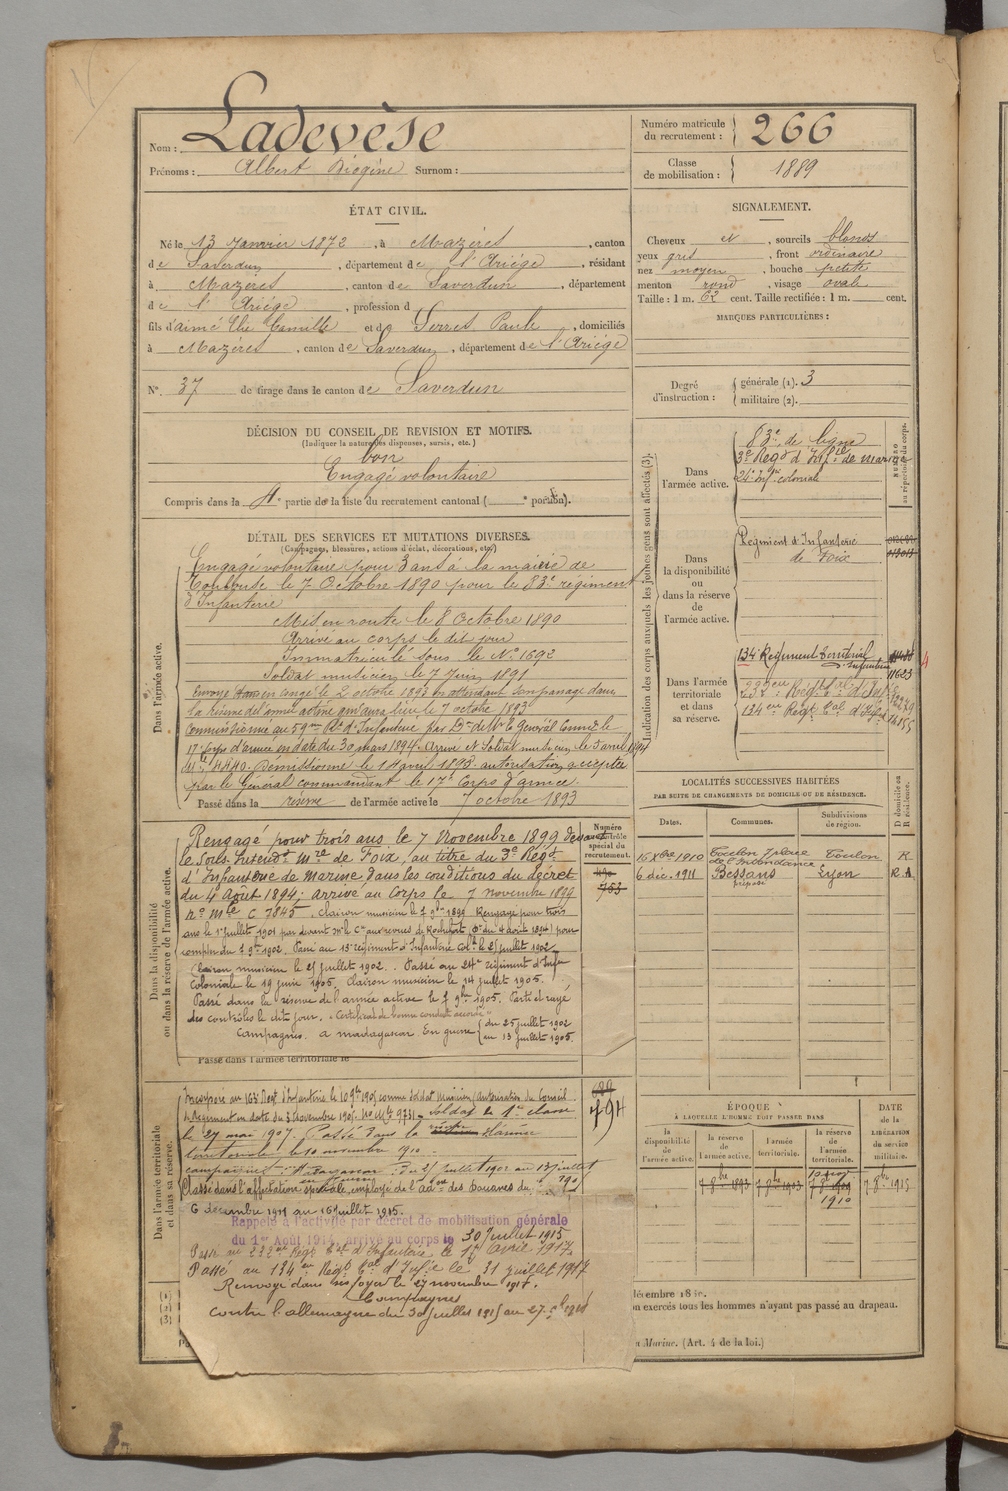 Nom : Ladevèse
Prénoms : Albert Diogène Surnom :
Numéro matricule du recrutement : 266
Classe de mobilisation : 1889
ÉTAT CIVIL.
Né le 13 Janvier 1872, à Mazères, canton
de Saverdun, département de l'Ariège, résidant
à Mazères, canton de Saverdun, département
de l'Ariège, profession d
fils d'aimé Elie Camille et de Serres Paule, domiciliés
à Mazères, canton de Saverdun, département de l'Ariège
N° 37 de tirage dans le canton de Saverdun
SIGNALEMENT.
Cheveux et, sourcils blonds
yeux gris, front ordinaire
nez moyen, bouche petite
menton rond, visage ovale
Taille : 1 m. 62 cent. Taille rectifiée : 1 m. cent.
MARQUES PARTICULIÈRES :
Degré d'instruction : générale (1). 3
militaire (2).
DÉCISION DU CONSEIL DE REVISION ET MOTIFS.
(Indiquer la nature des dispenses, sursis, etc.)
bon
Engagé volontaire
Compris dans la 4e partie de la liste du recrutement cantonal ( e portion).
DÉTAIL DES SERVICES ET MUTATIONS DIVERSES.
(Campagnes, blessures, actions d'éclat, décorations, etc.)
Dans l'armée active.
Engagé volontaire pour 3 ans à la mairie de
Toulouse le 7 Octobre 1890 pour le 83e régiment
d'Infanterie
Mis en route le 8 Octobre 1890
Arrivé au corps le dit jour
Immatriculé sous le N° 1692
Soldat musicien le 7 Juin 1891
Envoyé en congé le 2 octobre 1893 en attendant son passage dans
la réserve de l'armée active qui aura lieu le 7 octobre 1893
Commissionné au 59me Rt d'Infanterie par Don de Mr le Général Commdt le
17e Corps d'armée en date du 30 mars 1894. Arrivé et Soldat musicien le 5 avril 1894
Démissionne le 18 avril 1898. autorisation acceptée
par le Général commandant le 17e Corps d'armée.
Passé dans la réserve de l'armée active le 7 octobre 1893
Dans la disponibilité ou dans la réserve de l'armée active.
Numéro au contrôle spécial du recrutement.
763
Rengagé pour trois ans le 7 Novembre 1899 devant
le Sous-Intendt mre de Foix, au titre du 3e Régt
d'Infanterie de Marine dans les conditions du décret
du 4 Août 1894; arrivé au Corps le 7 novembre 1899
no mle C 7845. Clairon musicien le 7 9bre 1899 Rengagé pour trois
ans le 1er juillet 1901 par devant Mr le Cre aux revues de Rochefort (Dt du 4 août 1894) pour
compter du 7 9bre 1902. Passé au 13e régiment d'Infanterie Colle le 25 juillet 1902
Clairon musicien le 25 juillet 1902. Passé au 24e régiment d'Infie
Coloniale le 19 juin 1905. Clairon musicien le 14 juillet 1905.
Passé dans la réserve de l'armée active le 7 9bre 1905. Parti et rayé
des contrôles le dit jour. "Certificat de bonne conduite accordé"
Campagnes. à madagascar. En guerre du 25 juillet 1902
au 13 juillet 1905.
Passé dans l'armée territoriale le
Dans l'armée territoriale et dans sa réserve.
689
794
Incorporé au 163e Regt d'Infanterie le 10 9bre 1905 comme Soldat Musicien, autorisation du Conseil
du Régiment en date du 3 Novembre 1905. No Mle 9731 - Soldat de 1e classe
le 27 mai 1907. Passé dans la
territoriale le 10 novembre 1910.
campagnes : Madagascar : Du 25 juillet 1902 au 13 juillet
1905
Classé dans l'affectation spéciale employé de l'Adon des Douanes du
6 décembre 1911 au 16 juillet 1915.
Rappelé à l'activité par décret de mobilisation générale
du 1er Août 1914, arrivé au corps le 30 Juillet 1915
Passé au 232me Régt Tal d'Infanterie le 1er avril 1917.
Passé au 134eme Régt Tal d'Infie le 31 juillet 1917
Renvoyé dans ses foyers le 27 novembre 1917.
Campagnes
Contre l'allemagne du 30 Juillet 1915 au 27
Indication des corps auxquels les jeunes gens sont affectés (3).
NUMÉRO au répertoire du corps.
Dans l'armée active.
83e de ligne
3e Regt d'Infie de marine
24e Infie coloniale
Dans la disponibilité ou dans la réserve de l'armée active.
Régiment d'Infanterie
de Foix
Dans l'armée territoriale et dans sa réserve.
134 Régiment Territorial
Infanterie
11623
4
232eme Régt Tal d'Infie
134eme Régt Tal d'Infie
LOCALITÉS SUCCESSIVES HABITÉES
PAR SUITE DE CHANGEMENTS DE DOMICILE OU DE RÉSIDENCE.
Dates. Communes. Subdivisions de région. D domicile ou R résidence.
16 Xbre 1910 Toulon 7 place de l'Intendance Toulon R
6 déc. 1911 Bessans préposé Lyon R.A
ÉPOQUE
À LAQUELLE L'HOMME DOIT PASSER DANS
la disponibilité de l'armée active. la réserve de l'armée active. l'armée territoriale. la réserve de l'armée territoriale.
DATE de la LIBÉRATION du service militaire.
7 8bre 1893 7 8bre 1903 7 8bre 1909 7 8bre 1915
10 nov
1910
décembre 18
on exercés tous les hommes n'ayant pas passé au drapeau.
a Marine. (Art. 4 de la loi.)